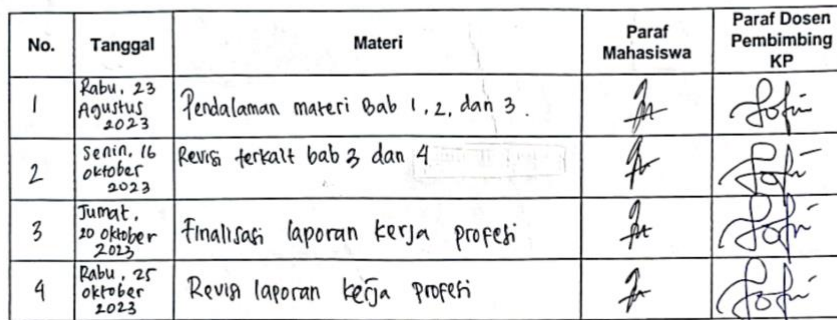 No. Tanggal Materi Paraf Mahasiswa Paraf Dosen Pembimbing KP
1 Rabu, 23 Agustus 2023 Pendalaman materi Bab 1, 2, dan 3.
2 Senin, 16 oktober 2023 Revisi terkait bab 3 dan 4
3 Jumat, 20 oktober 2023 Finalisasi laporan kerja profesi
4 Rabu, 25 oktober 2023 Revisi laporan kerja profesi